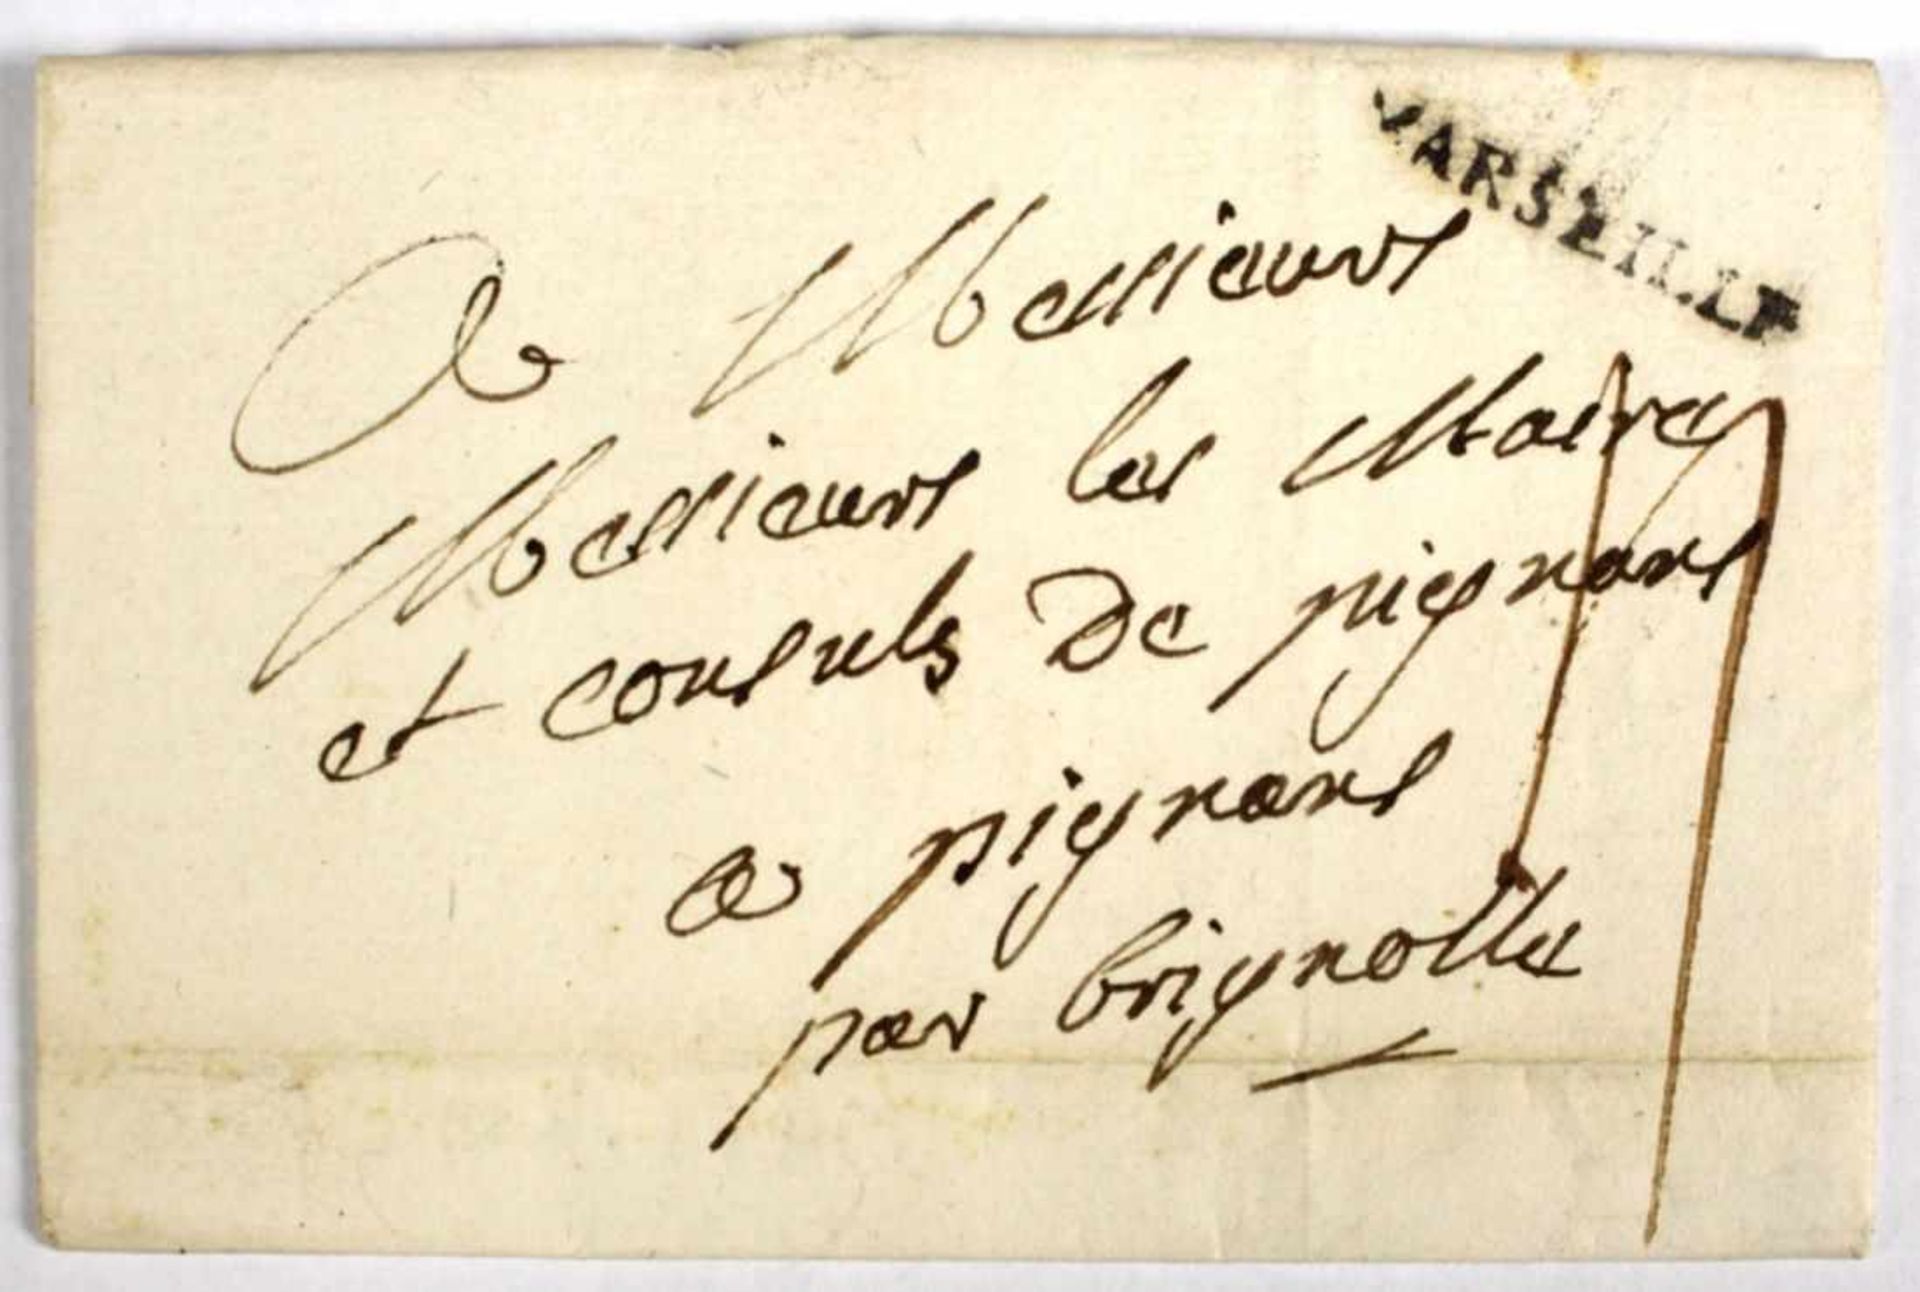 MARSEILLE
A Messieurs
Messieurs les Maire
et consuls De pignans
a pignans
par brignolle